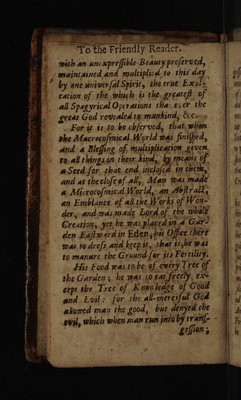 To the Friendly Reader.
with an unexpressible Beauty preserved,
maintained and multiplied to this day
by one universal Spirit, the true Exal-
tation of the which is the greatest of
all Spagyrical Operations that ever the
great God revealed to mankind, &c.
For it is to be observed, that when
the Macrocosmical World was finished,
and a Blessing of multiplication given
to all things in their kind, by means of
a Seed for that end inclosed in them,
and at the close of all, Man was made
a Microcosmical World, an Abstract,
an Emblance of all the Works of Won-
der, and was made Lord of the whole
Creation, yet he was placed in a Gar-
den Eastward in Eden, his Office there
was to dress and keep it, that is, he was
to manure the Ground for its Fertility.
His Food was to be of every Tree of
the Garden; he was to eat freely, ex-
cept the Tree of Knowledge of Good
and Evil: for the all-merciful God
allowed man the good, but denyed the
evil, which when man run into by trans-
gression;